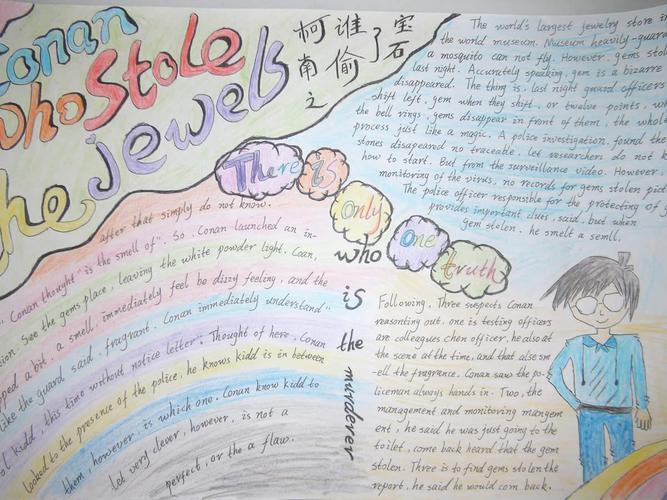 Conan
Who Stole
the jewels
柯南之
谁偷了
宝石
There is only one truth
who is the murderer
The world's largest jewelry store
the world museum. Museum heavily-guar
a mosquito can not fly. However, gems stol
last night. Accurately speaking, gem is a bizarre
disappeared. The thing is, last night guard officers
shift left, gem when they shift, or twelve points, w
the bell rings, gems disappear in front of them, the whol
process just like a magic. A police investigation, found the
stones disapeared no traceable, let researchers do not k
how to start. But from the surveillance video. However,
monitoring of the virus, no records for gems stolen pic
The police officer responsible for the protecting of
provides important clues, said, but when
gem stolen, he smelt a semll,
after that simply do not know.
" Conan thought "is the smell of". So, Conan launched an in-
sion. See the gems place, leaving the white powder light. Coan,
pped a bit, a smell, immediately feel bo dizzy feeling, and the
like the guard said, fragrant. Conan immediately understand"
ol kidd, this time without notice letter". Thought of here, Conan
looked to the presence of the police, he knows kidd is in between
them, however, is which one. Conan know kidd to
let very clever, however, is not a
perfect, or the a flaw.
Following, Three suspects Conan
reasonting out, one is testing officers
are colleagues chen officer, he also at
the scene at the time, and that alse sm
-ell the fragrance. Conan saw the po-
liceman always hands in. Two, the
management and monitoring mangem
ent, he said he was just going to the
toilet, come back heard that the gem
stolen. Three is to find gems stolen the
report, he said he would com back.